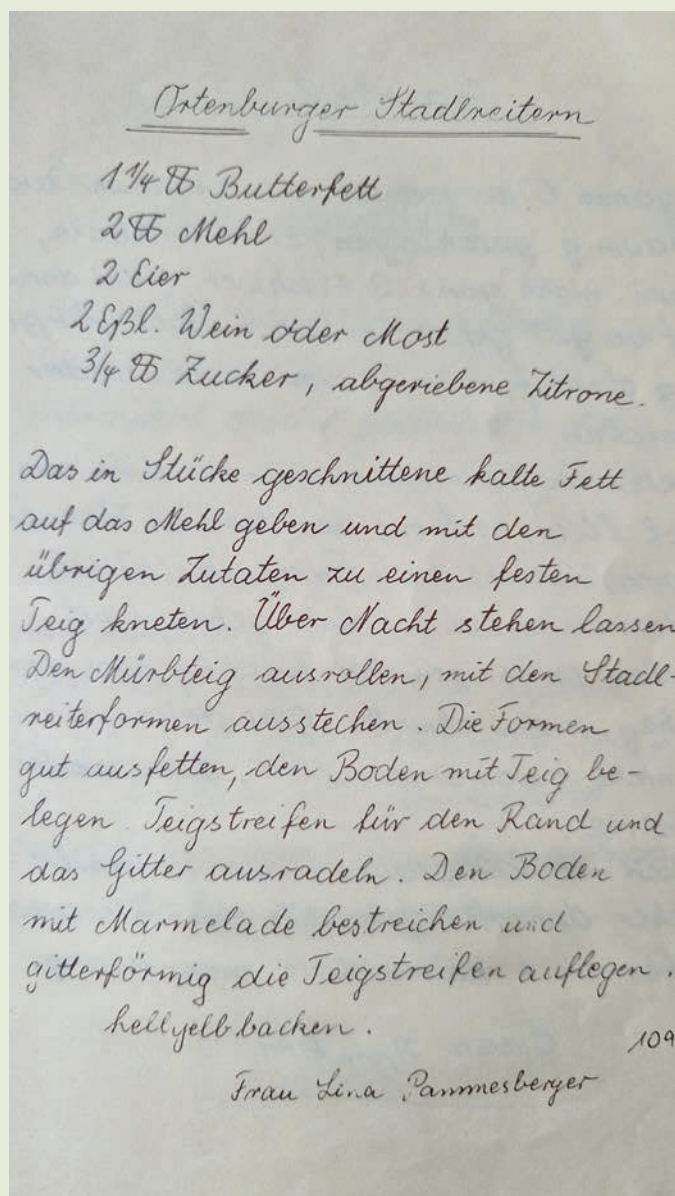 Ortenburger Stadlreitern
1 1/4 ℔ Butterfett
2 ℔ Mehl
2 Eier
2 Eßl. Wein oder Most
3/4 ℔ Zucker, abgeriebene Zitrone.
Das in Stücke geschnittene kalte Fett
auf das Mehl geben und mit den
übrigen Zutaten zu einen festen
Teig kneten. Über Nacht stehen lassen
Den Mürbteig ausrollen, mit den Stadl-
reiterformen ausstechen. Die Formen
gut ausfetten, den Boden mit Teig be-
legen. Teigstreifen für den Rand und
das Gitter ausradeln. Den Boden
mit Marmelade bestreichen und
gitterförmig die Teigstreifen auflegen.
hellgelb backen.
109
Frau Lina Pammesberger